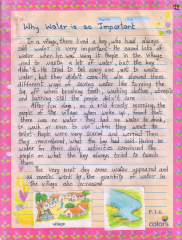 Why Water is so Important
In a village, there lived a boy who had always
said water is very important. He saved lots of
water when he was using it. People in the village
used to waste a lot of water but the boy
didn't. He tried to tell every one not to waste
water, but they didn't care. He also showed them
different ways of saving water like turning the
tap off when brushing teeth, washing clothes, utensils
and bathing still the people didn't care.
After few days, on a mild friendly morning the
people of the village when woke up, found that
there was no water. They had no water to drink,
to wash or even to use when they went to
toilet. People were very scared and worried. Then
they remembered, what the boy had said. Saving
water in their daily activities convinced the
people on what the boy always tried to teach
them.
The very next day some water appeared and
as months went by the quantity of water in
the village also increased.
village
P.T.O
colors